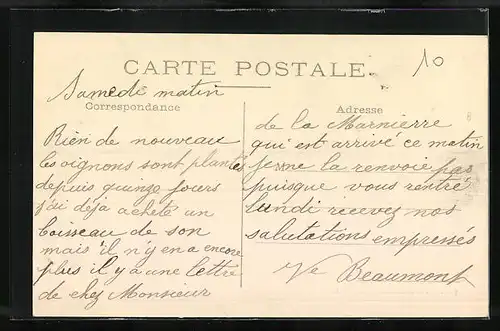 CARTE POSTALE.
10
Samedi matin
Correspondance
Rien de nouveau
les oignons sont plantés
depuis quinze jours
j'ai déja acheté un
boisseau de son
mais il n'y en a encore
plus il y a une lettre
de chez Monsieur
Adresse
de la Marnierre
qui est arrivé ce matin
je ne la renvoie pas
puisque vous rentré
lundi recevez nos
salutations empressés
Ve Beaumont